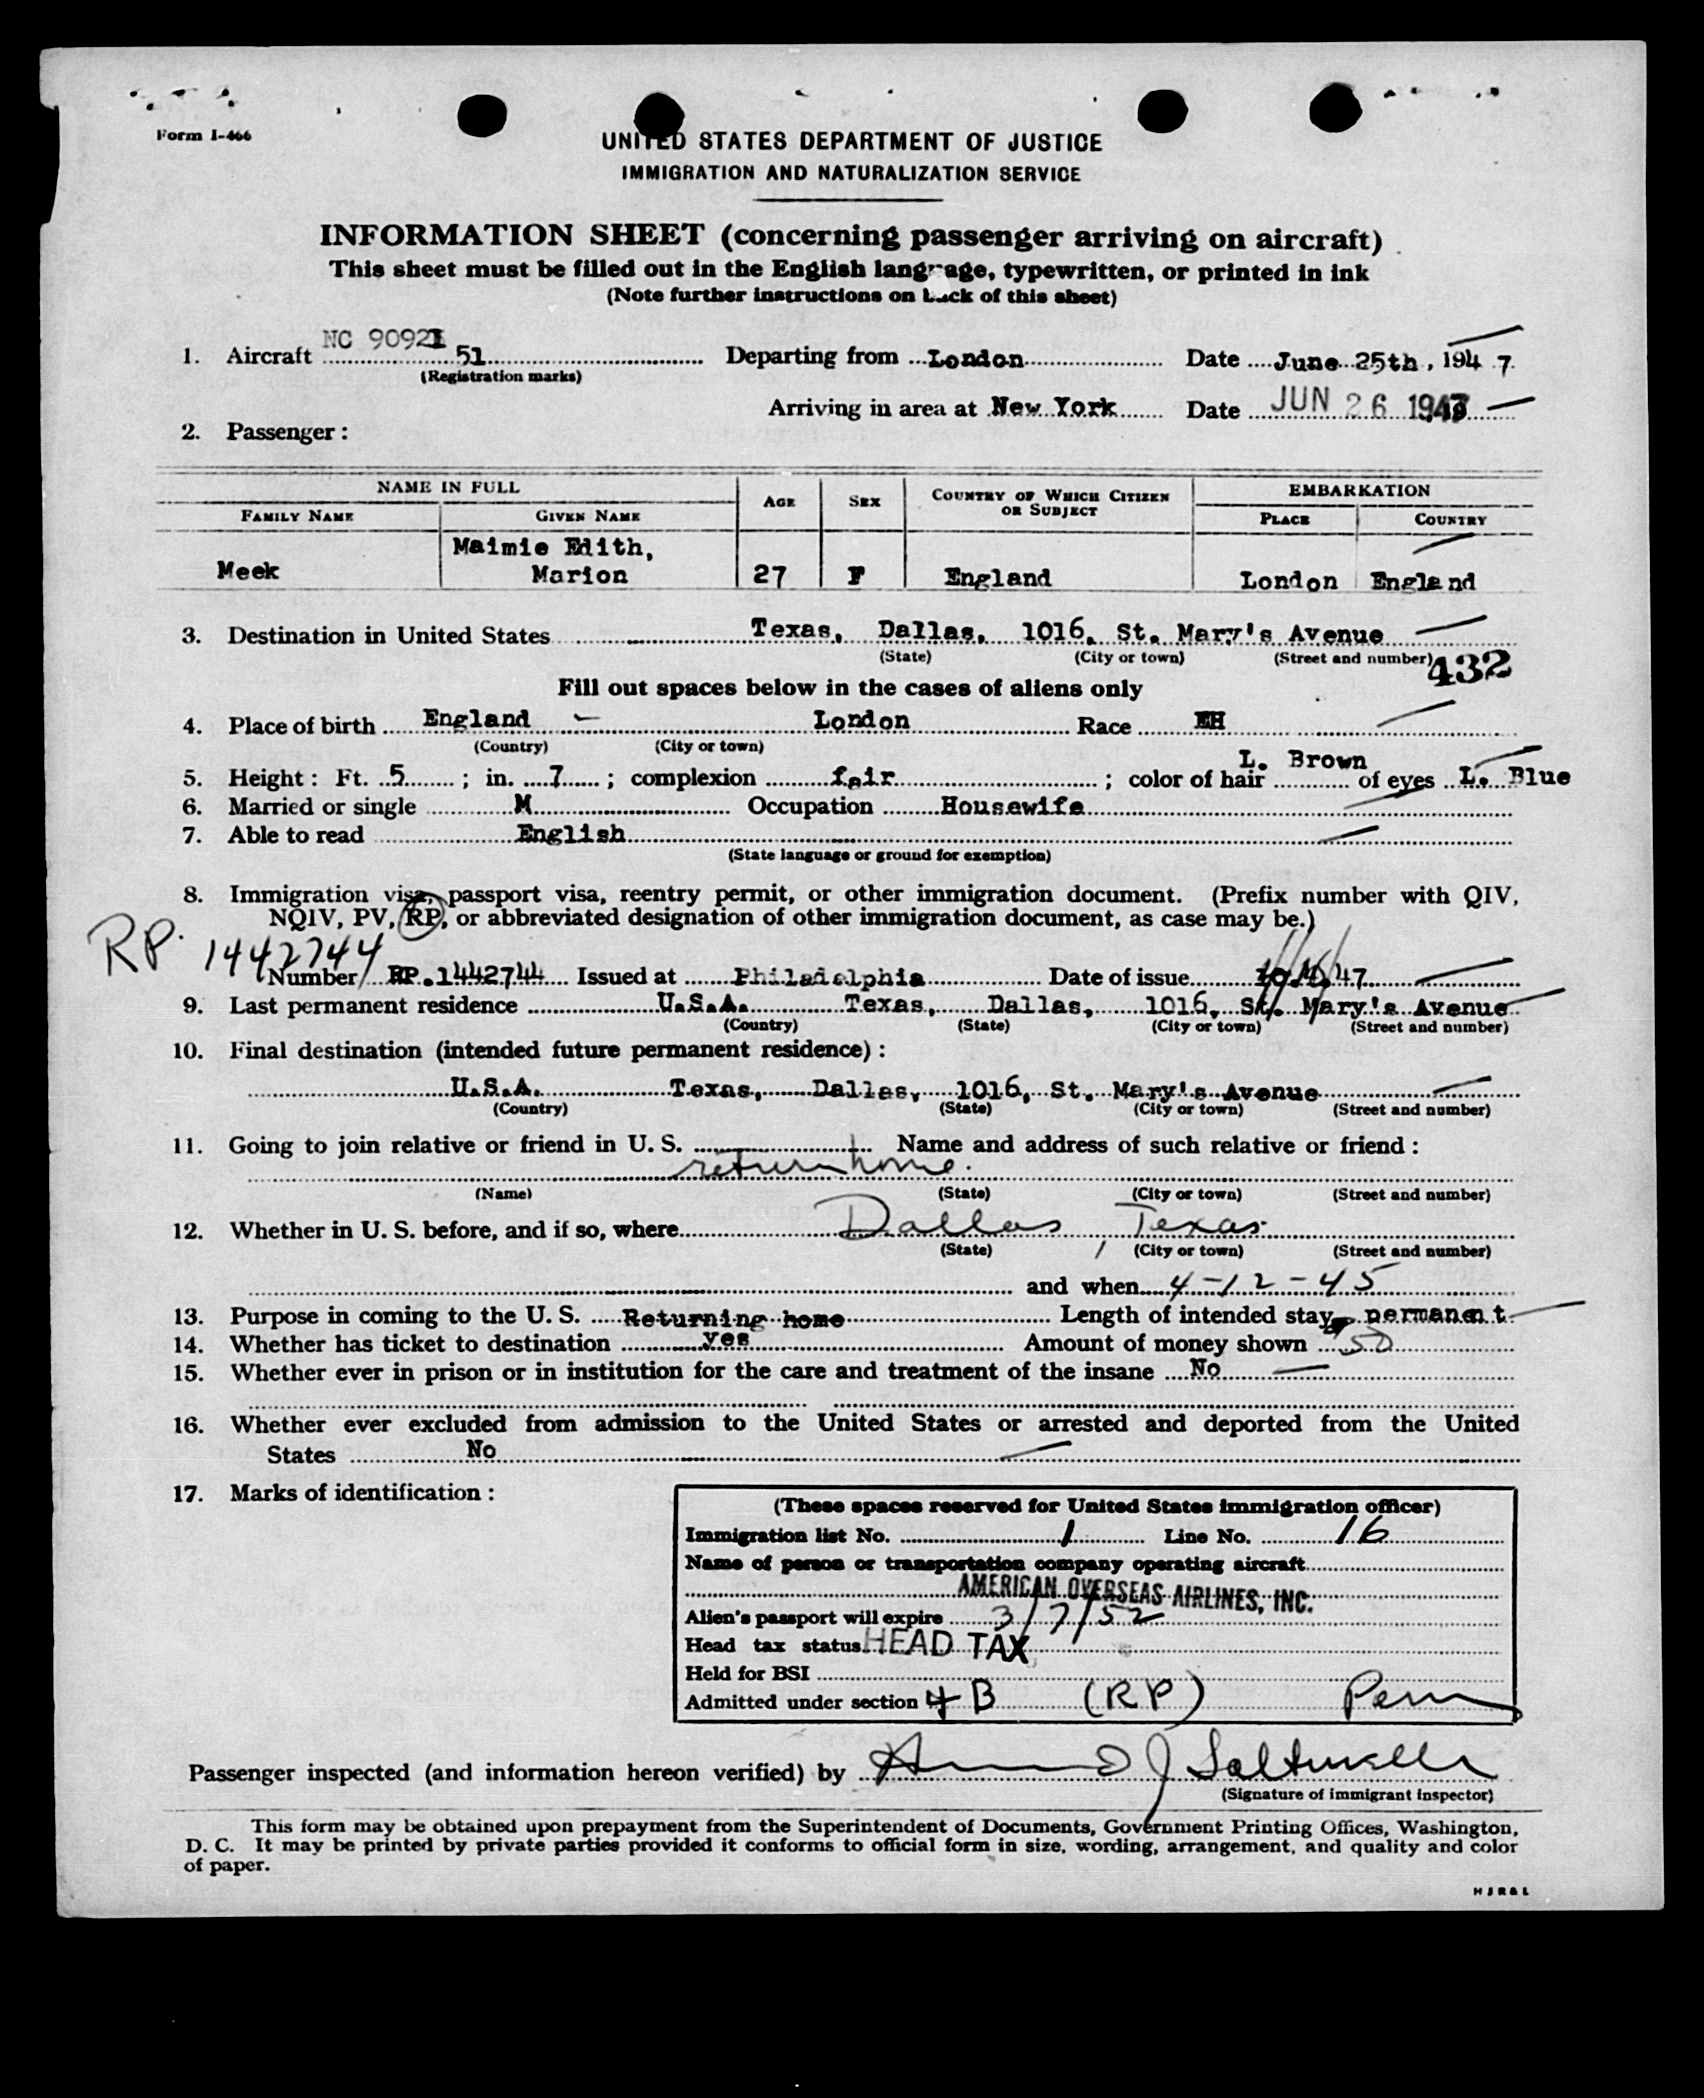 Form I-466
UNITED STATES DEPARTMENT OF JUSTICE
IMMIGRATION AND NATURALIZATION SERVICE
INFORMATION SHEET (concerning passenger arriving on aircraft)
This sheet must be filled out in the English language, typewritten, or printed in ink
(Note further instructions on back of this sheet)
1. Aircraft NC 9092 51 Departing from London Date June 25th, 1947
(Registration marks)
Arriving in area at New York Date JUN 26 1947
2. Passenger:
NAME IN FULL AGE SEX COUNTRY OF WHICH CITIZEN OR SUBJECT EMBARKATION
FAMILY NAME GIVEN NAME PLACE COUNTRY
Maimie Edith,
Meek Marion 27 F England London England
3. Destination in United States Texas, Dallas, 1016, St. Mary's Avenue
(State) (City or town) (Street and number)
432
Fill out spaces below in the cases of aliens only
4. Place of birth England London Race EH
(Country) (City or town)
5. Height: Ft. 5; in. 7; complexion fair; color of hair L. Brown of eyes L. Blue
6. Married or single M Occupation Housewife
7. Able to read English
(State language or ground for exemption)
8. Immigration visa, passport visa, reentry permit, or other immigration document. (Prefix number with QIV,
NQIV, PV, RP, or abbreviated designation of other immigration document, as case may be.)
RP. 1442744
Number RP.1442744 Issued at Philadelphia Date of issue 47
9. Last permanent residence U.S.A. Texas, Dallas, 1016, St. Mary's Avenue
(Country) (State) (City or town) (Street and number)
10. Final destination (intended future permanent residence):
U.S.A. Texas, Dallas, 1016, St. Mary's Avenue
(Country) (State) (City or town) (Street and number)
11. Going to join relative or friend in U. S. Name and address of such relative or friend:
return home.
(Name) (State) (City or town) (Street and number)
12. Whether in U. S. before, and if so, where Dallas, Texas.
(State) (City or town) (Street and number)
and when 4-12-45
13. Purpose in coming to the U. S. Returning home Length of intended stay permanent.
14. Whether has ticket to destination yes Amount of money shown 50
15. Whether ever in prison or in institution for the care and treatment of the insane No
16. Whether ever excluded from admission to the United States or arrested and deported from the United
States No
17. Marks of identification:
(These spaces reserved for United States immigration officer)
Immigration list No. 1 Line No. 16
Name of person or transportation company operating aircraft
AMERICAN OVERSEAS AIRLINES, INC.
Alien's passport will expire 3/7/52
Head tax status HEAD TAX
Held for BSI
Admitted under section 4 B (RP) Perm
Passenger inspected (and information hereon verified) by
(Signature of immigrant inspector)
This form may be obtained upon prepayment from the Superintendent of Documents, Government Printing Offices, Washington,
D. C. It may be printed by private parties provided it conforms to official form in size, wording, arrangement, and quality and color
of paper.
H J R & L